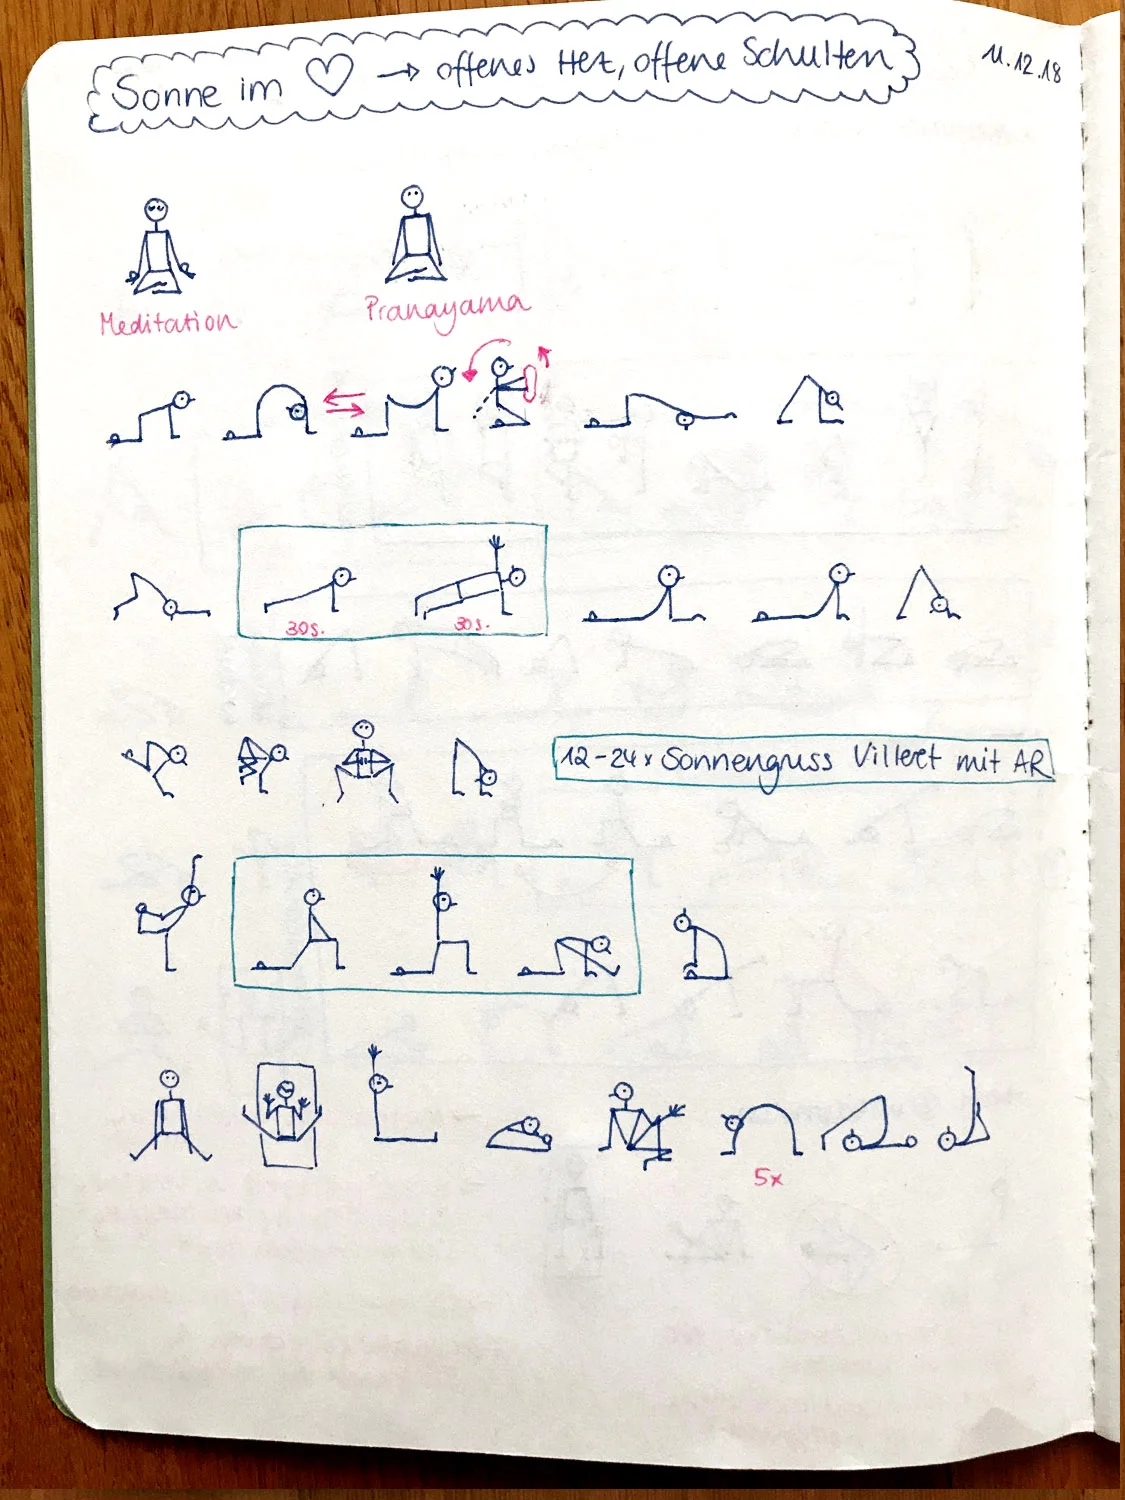 Sonne im ♡ → offenes Herz, offene Schultern
11.12.18
Meditation
Pranayama
30s.
30s.
12-24x Sonnengruss Villeret mit AR
5x